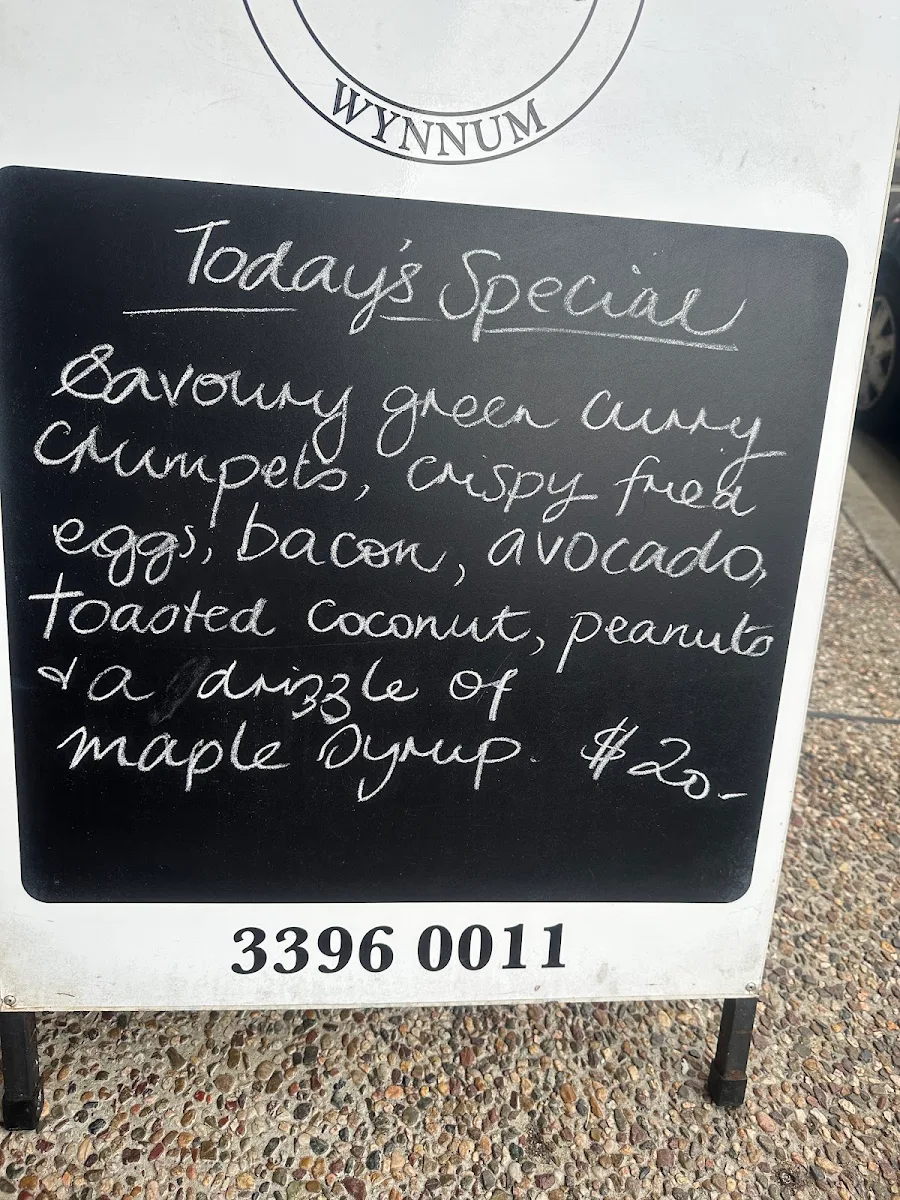 WYNNUM
Today's Special
Savoury green curry
crumpets, crispy fried
eggs, bacon, avocado,
toasted coconut, peanuts
& a drizzle of
maple syrup. $20-
3396 0011